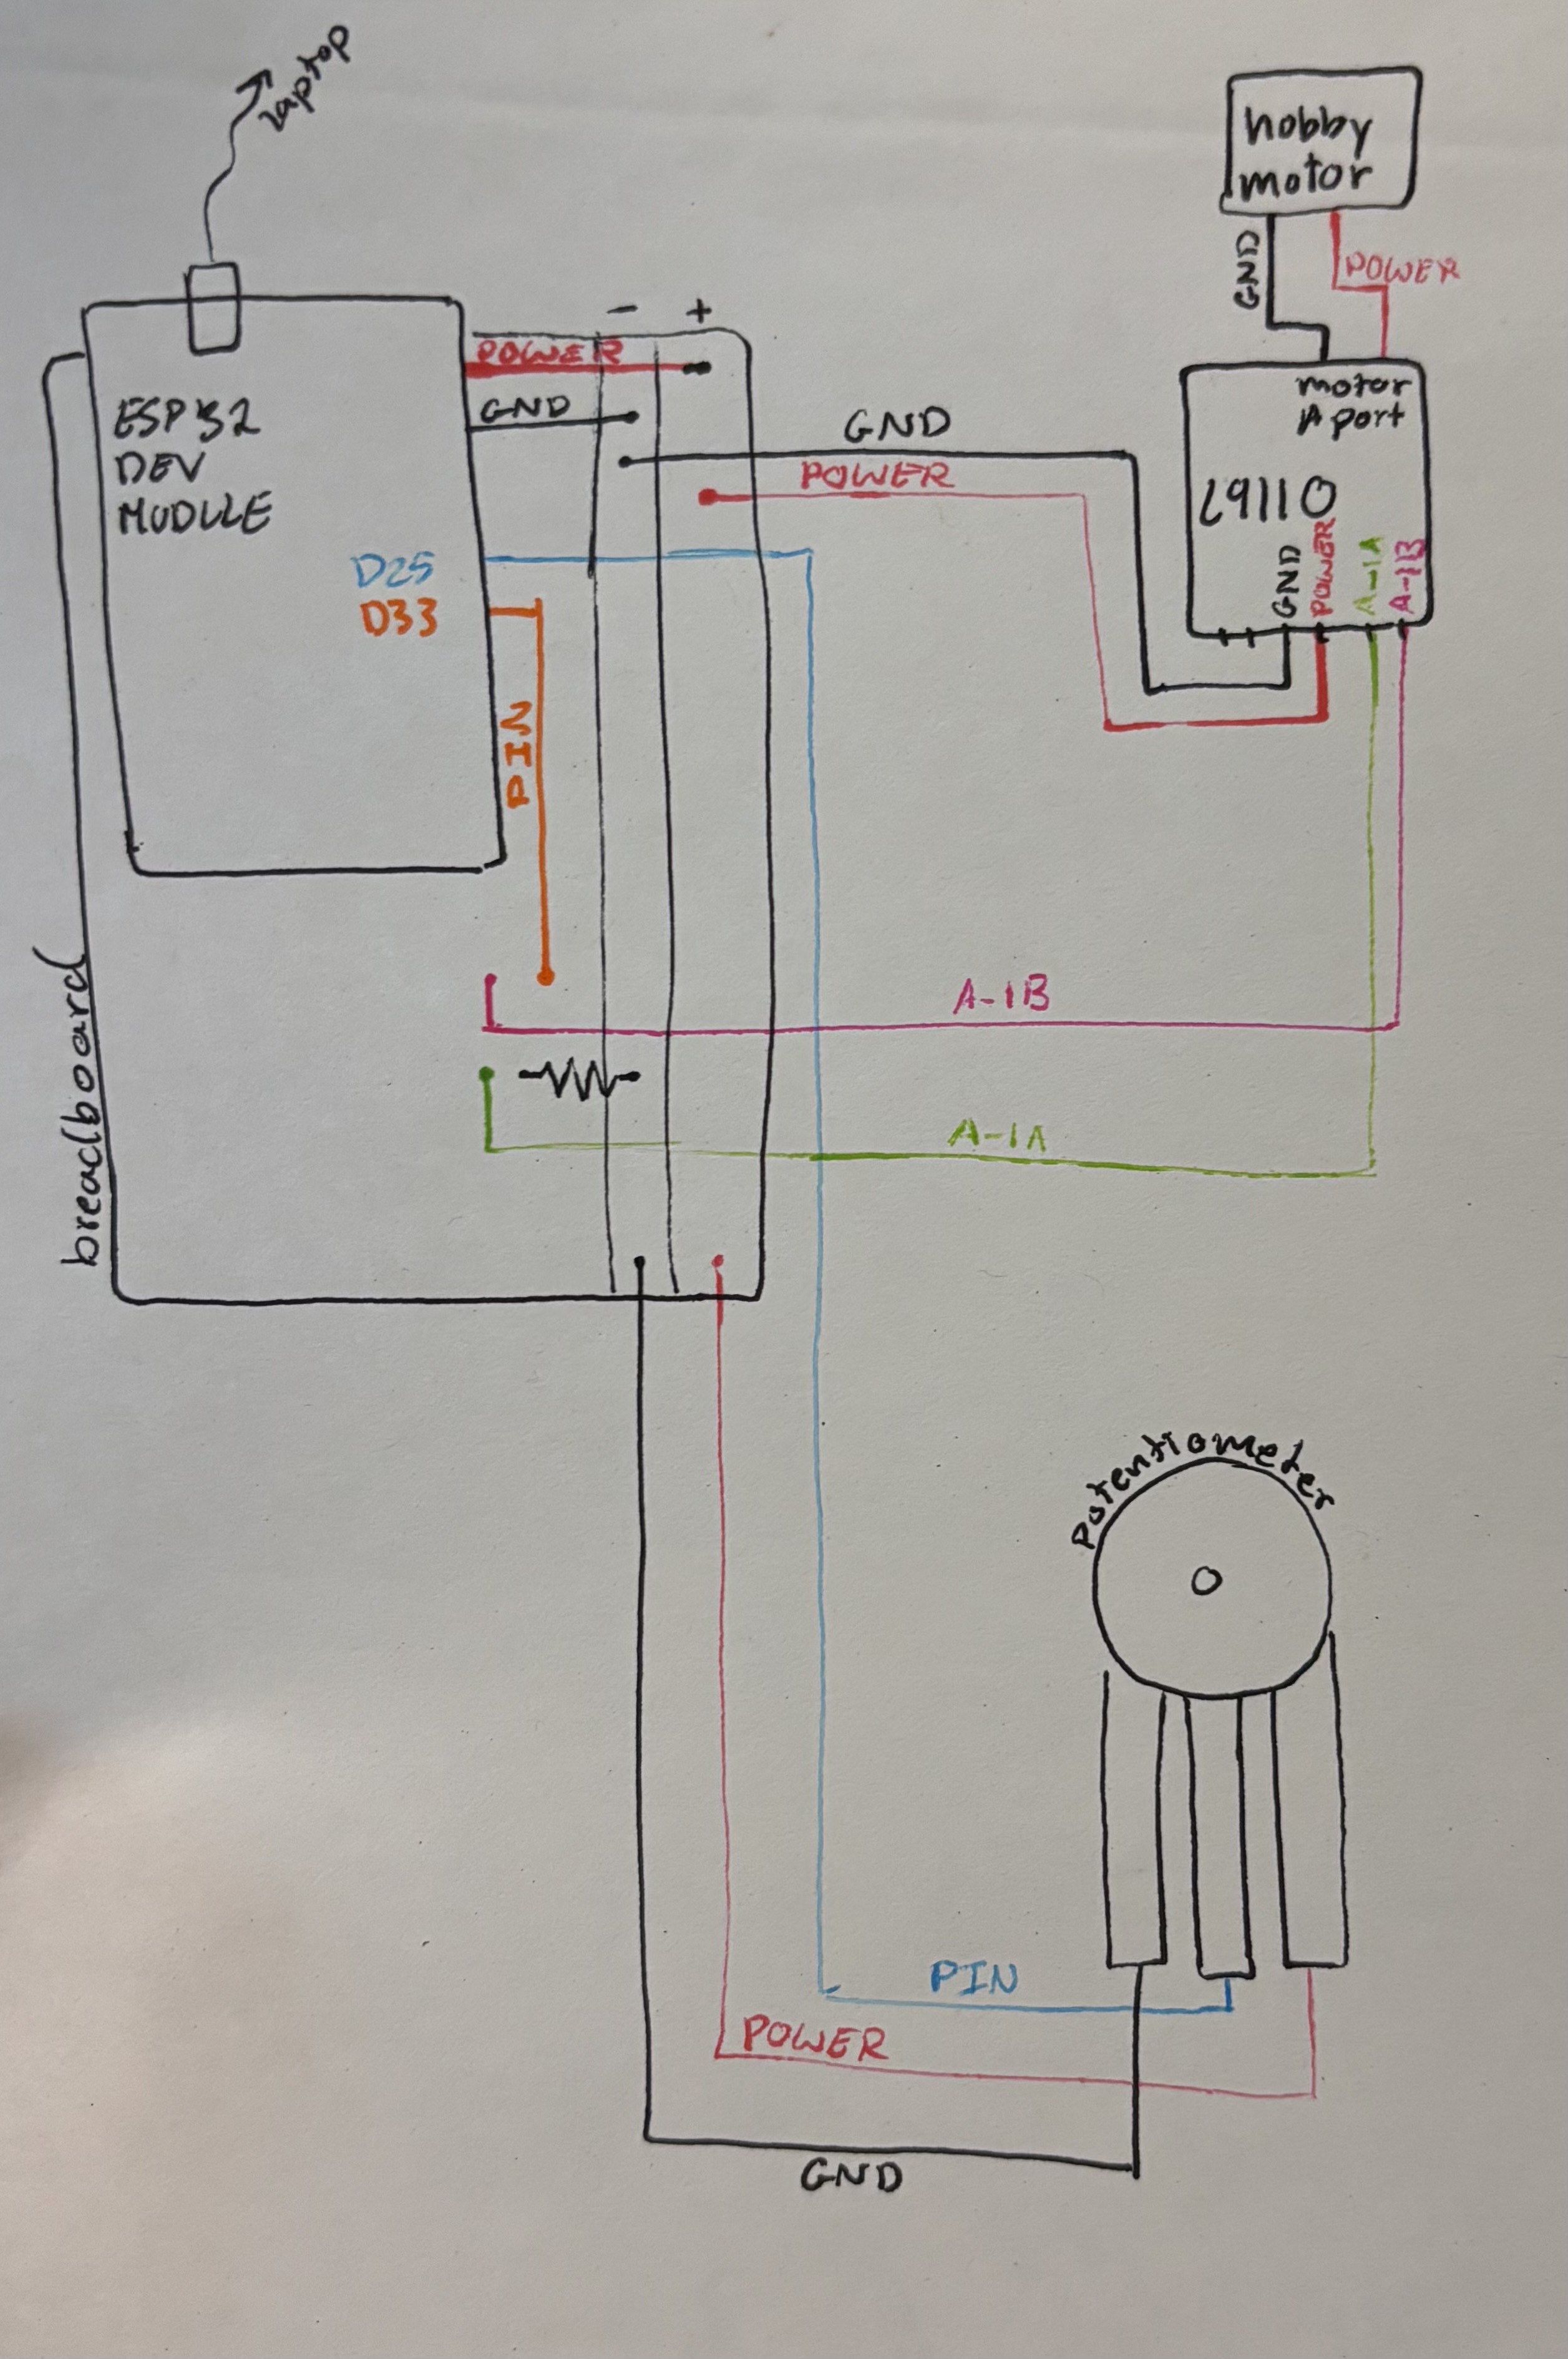 laptop
hobby
motor
GND
POWER
- +
POWER
GND
ESP32
DEV
MODULE
D25
D33
PIN
GND
POWER
motor
A port
L9110
GND
POWER
A-1A
A-1B
breadboard
A-1B
A-1A
Potentiometer
PIN
POWER
GND